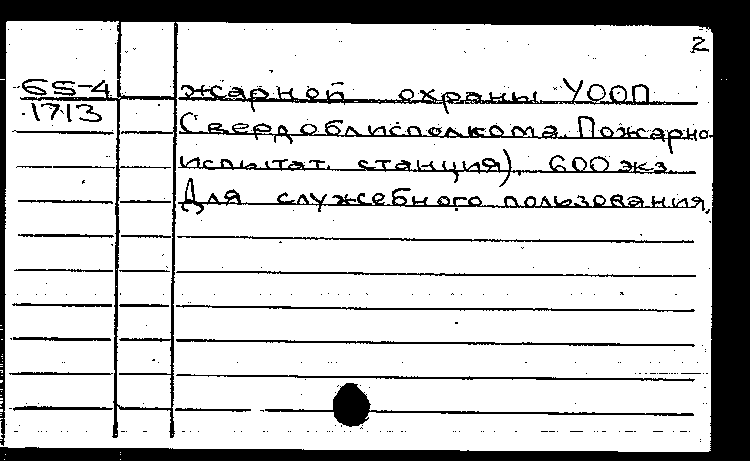 2
65-4
1713
жарной охраны УООП
Свердоблисполкома. Пожарно-
испытат. станция). 600 экз.
Для служебного пользования.